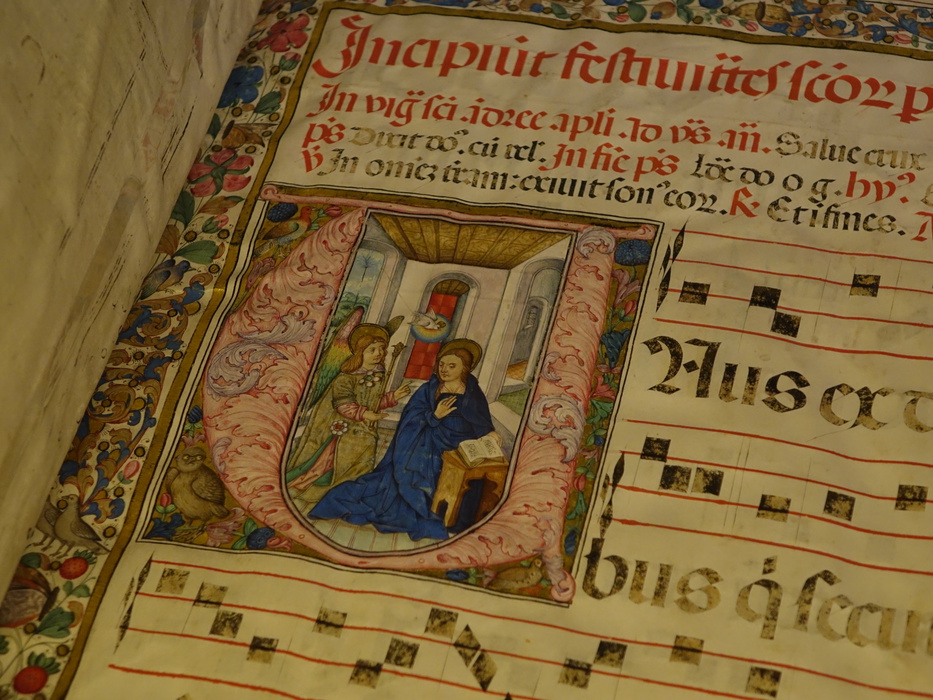 Incipiūt festiuitates scōr p
In vigͥ sci ādree apli. Ad vs̄ añ. Salue crux
ps Dixit do⁹. cū rel. In fıc ps do o g. hy⁹.
℣ In omēz terram: exiuit son⁹ eor. ℟ Et ı fines.
U
Aus ex
bus q̇ secun